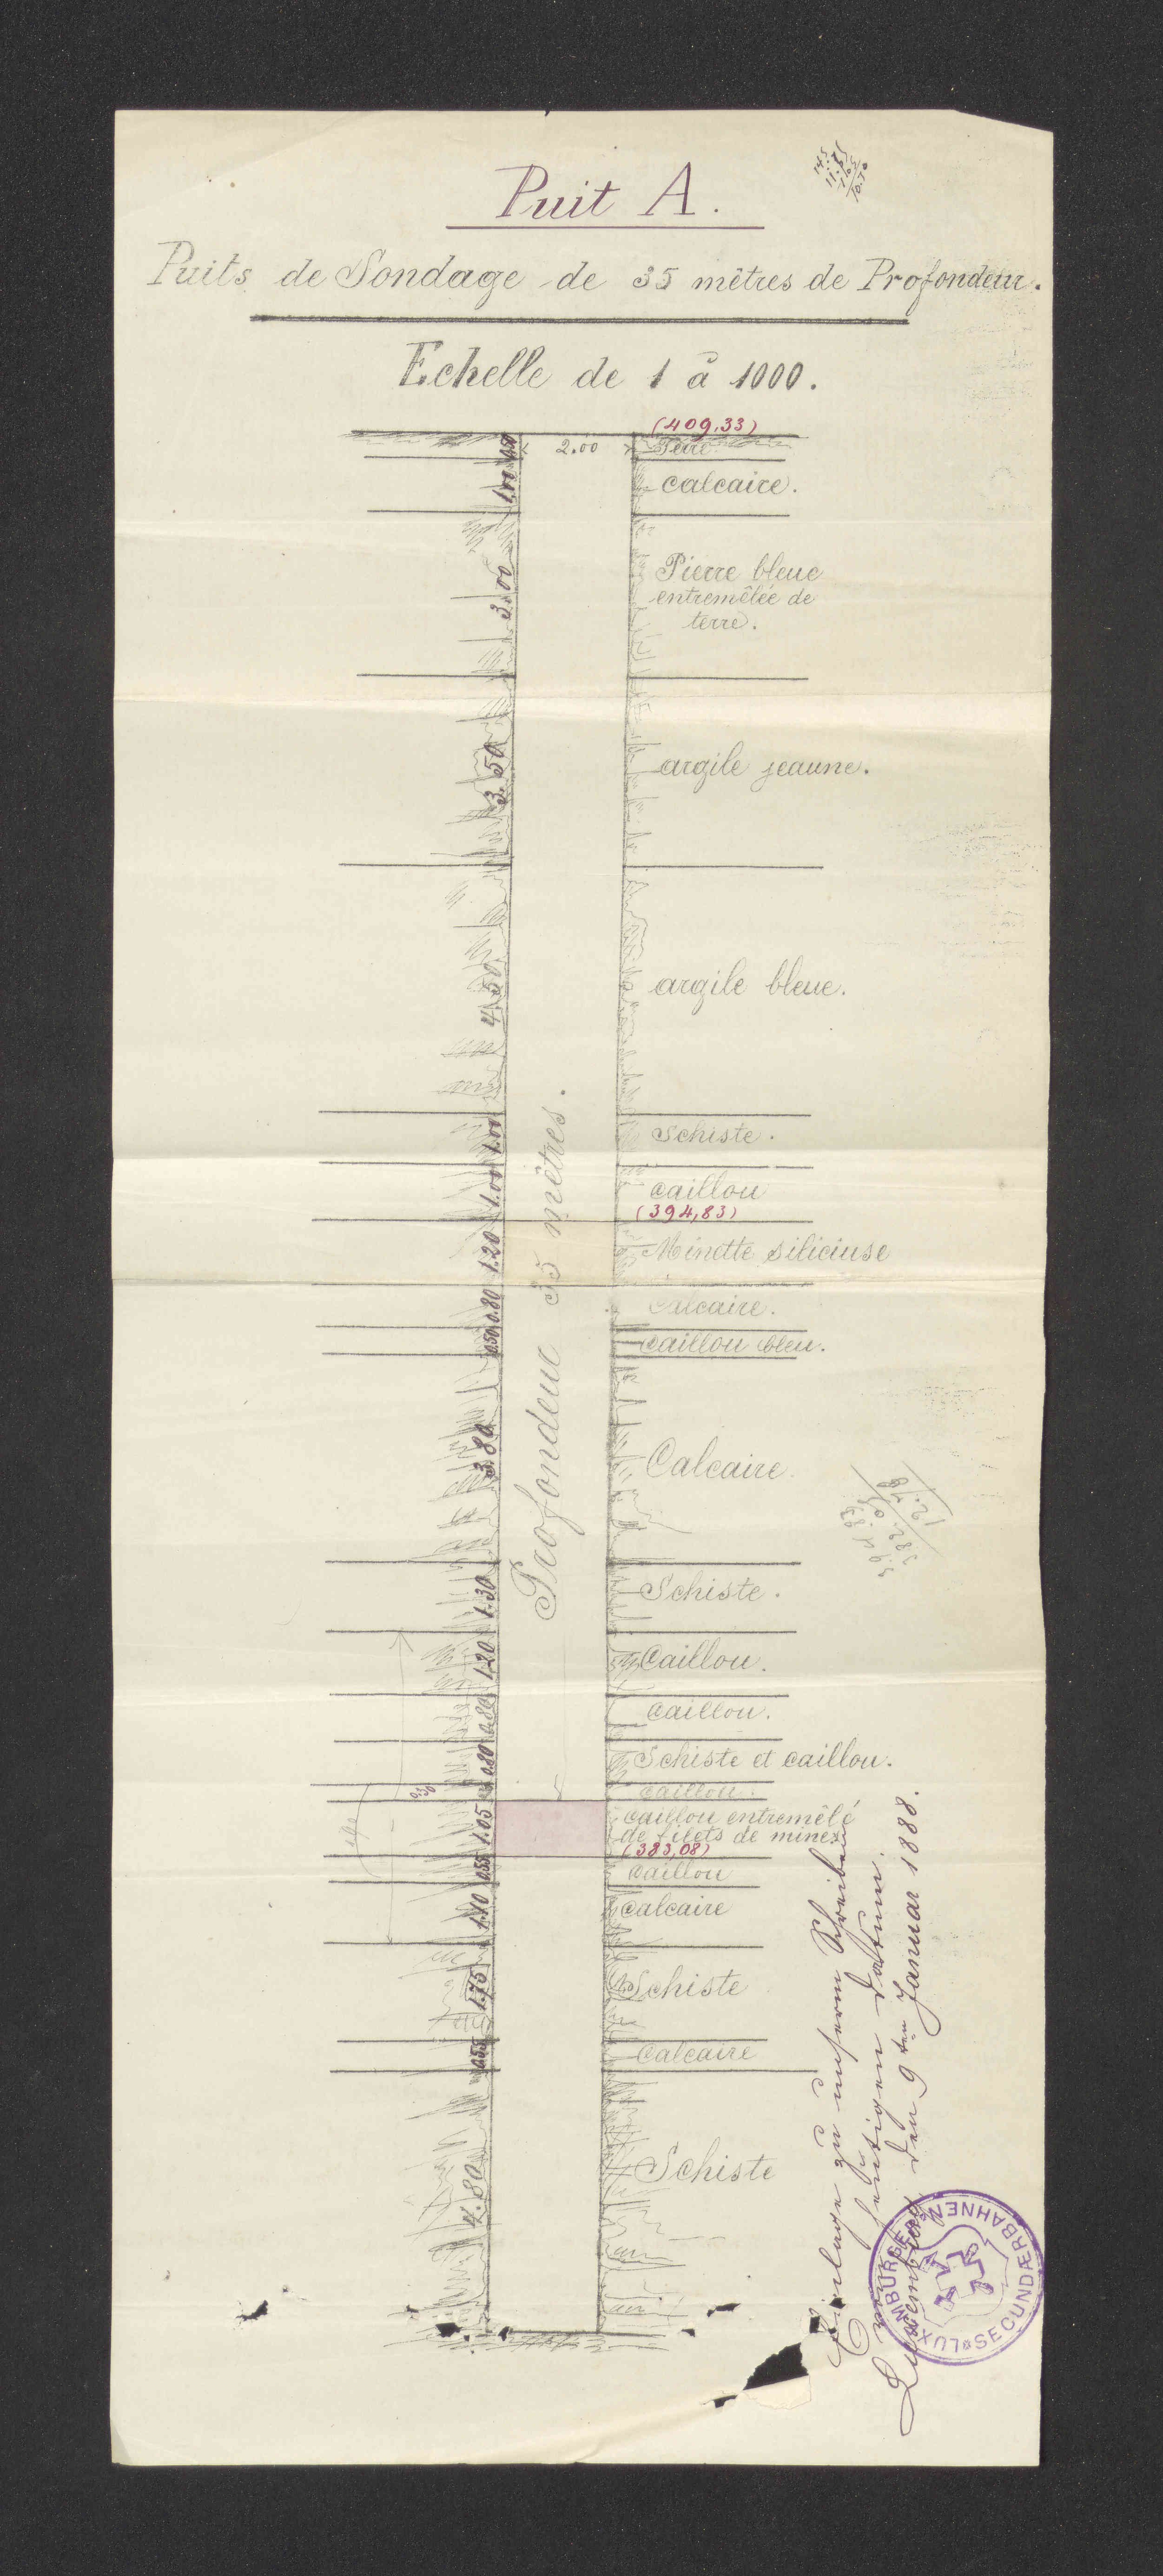 Puit A.
Puits de Sondage de 35 mêtres de Profondeur.
Echelle de 1 à 1000.
(409,33)
2.00
Terre
1.00
calcaire.
3.00
Pierre bleue
entremêlée de
terre.
3.50
argile jeaune.
4.50
argile bleue.
1.00
schiste.
1.00
caillou
(394,83)
1.20
Minette siliciuse
0.80
calcaire.
0.50
caillou bleu.
3.80
Calcaire.
1.30
Schiste.
1.20
Caillou.
0.80
caillou.
0.80
Schiste et caillou.
0.30
caillou.
1.05
caillou entremêlé
de filets de mines
(383,08)
0.55
caillou
1.10
calcaire
1.75
Schiste
0.55
calcaire
4.80
Schiste
Profondeur 35 mêtres.
394.83
382.05
12.78
Einlage zu unserm Schreiben
vom heutigen Datum.
Luxemburg, den 9ten Januar 1888.
LUXEMBURGER SECUNDÆRBAHNEN